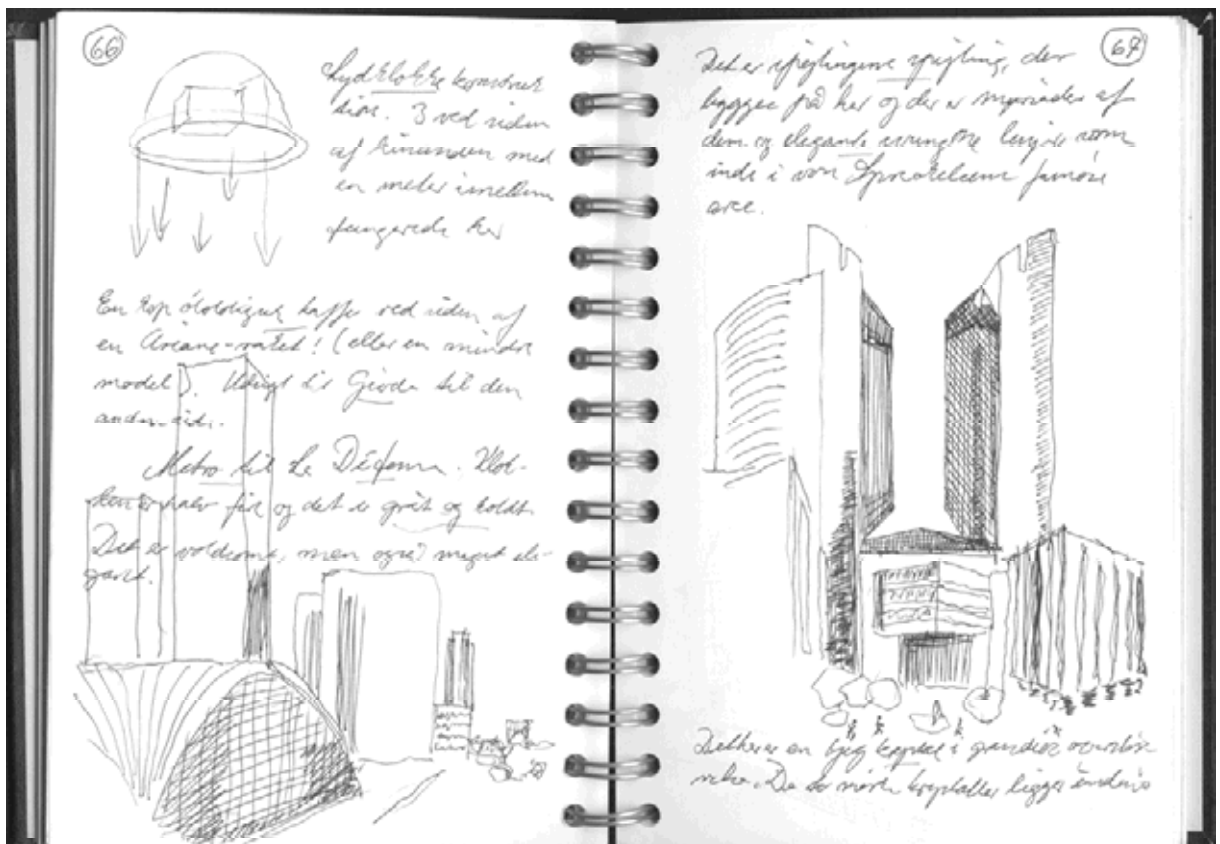 66
Lydklokke konstruk
tion. 3 ved siden
af hinanden med
en meter imellem
fungerede her
En kop óloldigus kaffe ved siden af
en Ariane-raket! (eller en mindre
model). Udsigt til Géode til den
anden side.
Metro til La Défense. Klok-
ken er halv fire og det er gråt og koldt.
Det er voldsomt, men også meget ele-
gant.
67
Det er spejlingens spejling, der
bygges på her og der er myriader af
dem og elegante svungne linjer som
inde i von Spreckelsens famøse
arc.
Dether er en byg i grandios
Da så ligger